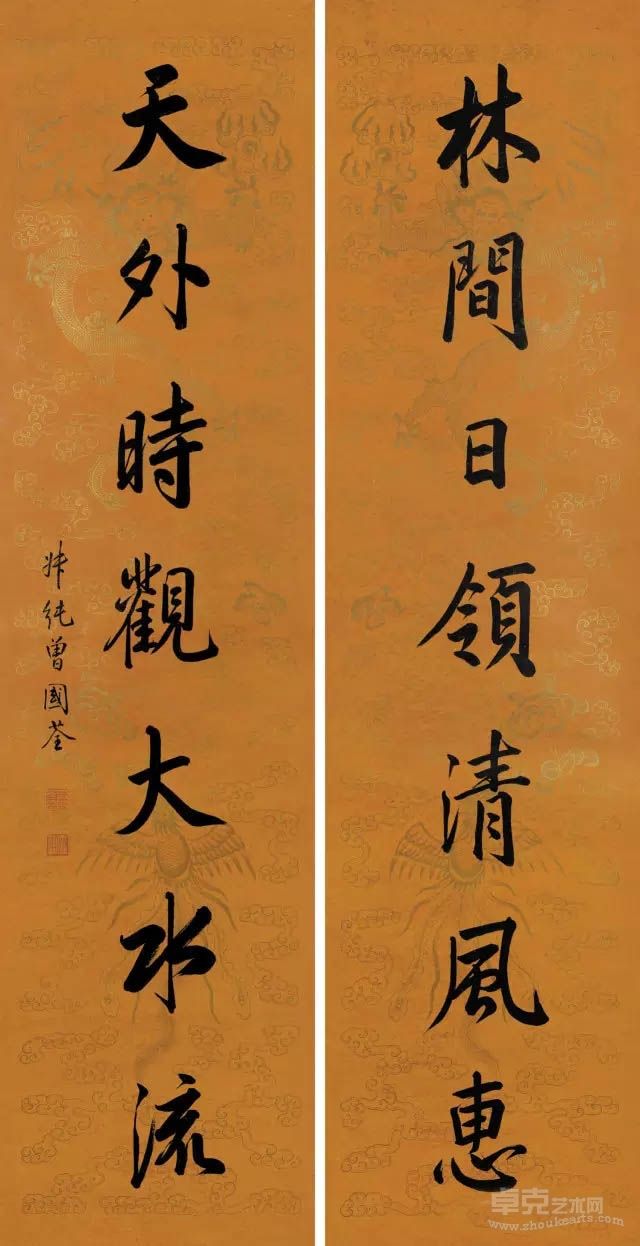 林間日領清風惠
天外時觀大水流
叔純曾國荃
卓克艺术网
www.zhoukearts.com